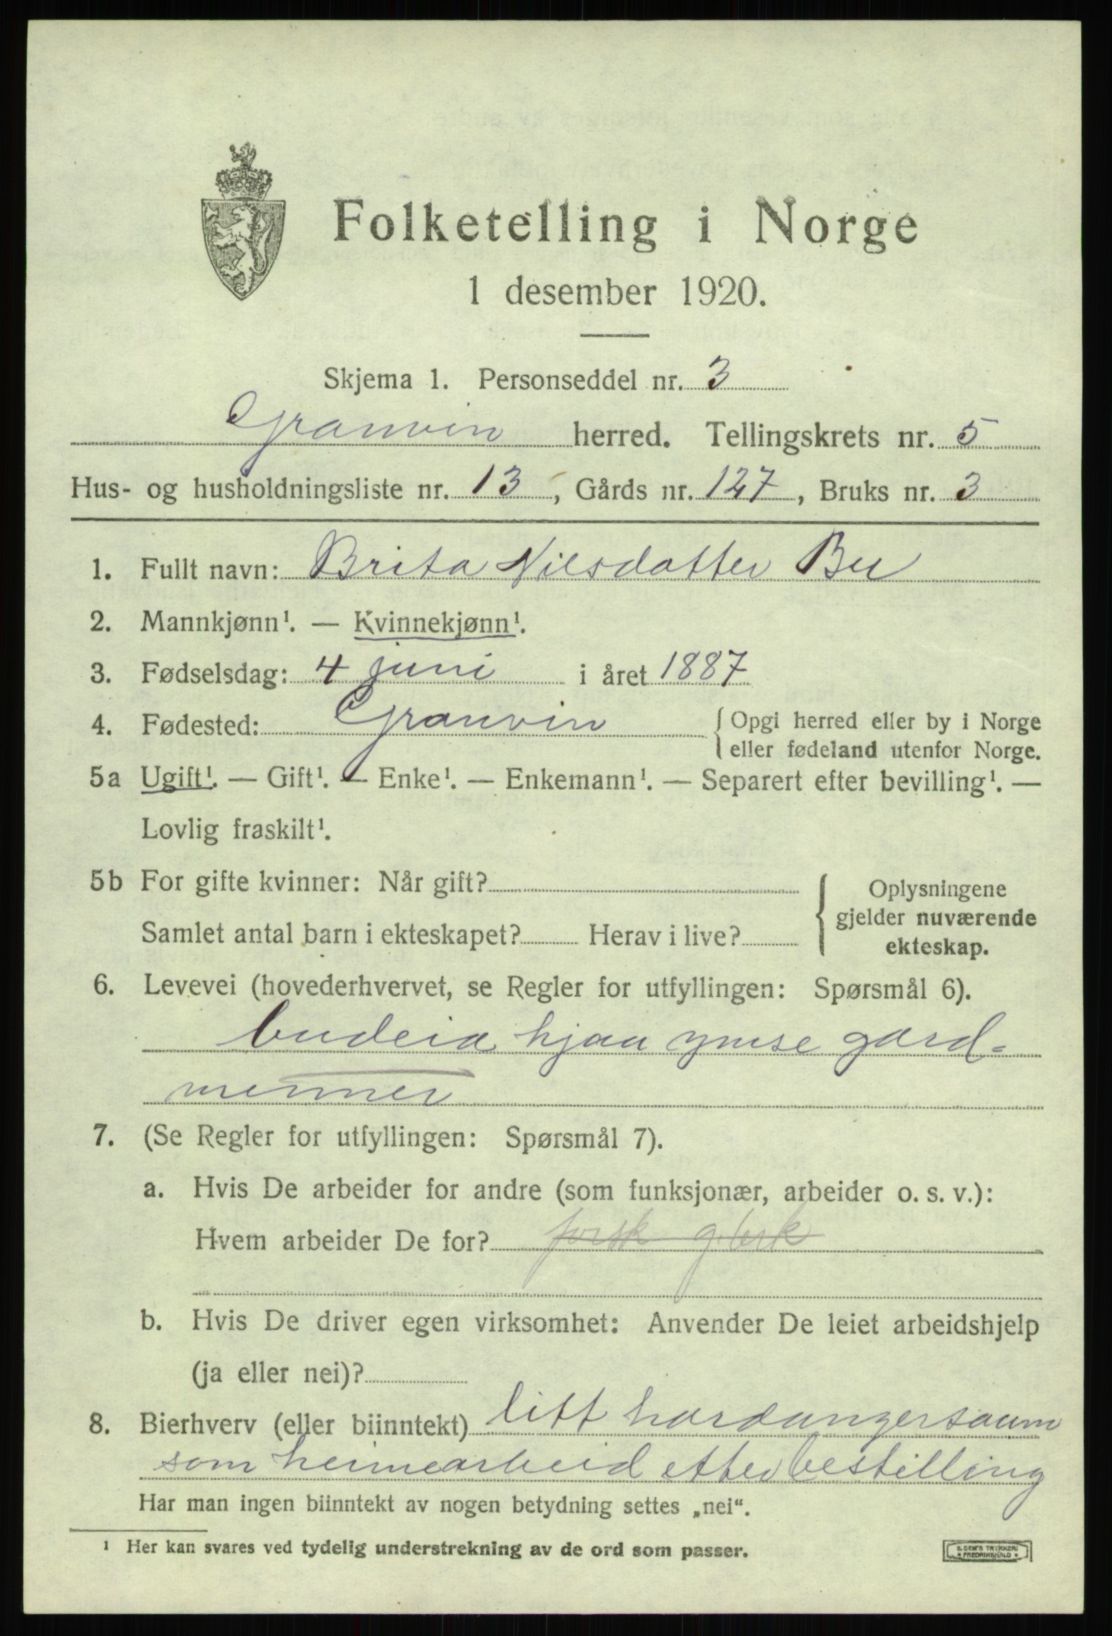 Folketelling i Norge
1 desember 1920.
Skjema 1. Personseddel nr. 3
Granvin herred. Tellingskrets nr. 5
Hus- og husholdningsliste nr. 13, Gårds nr. 127, Bruks nr. 3
1. Fullt navn: Brita Nilsdatter Bu
2. Mannkjønn¹. — Kvinnekjønn¹.
3. Fødselsdag: 4 juni i året 1887
4. Fødested: Granvin {Opgi herred eller by i Norge
eller fødeland utenfor Norge.
5a Ugift¹. — Gift¹. — Enke¹. — Enkemann¹. — Separert efter bevilling¹. —
Lovlig fraskilt¹.
5b For gifte kvinner: Når gift? { Oplysningene
gjelder nuværende
Samlet antal barn i ekteskapet? Herav i live?
ekteskap.
6. Levevei (hovederhvervet, se Regler for utfyllingen: Spørsmål 6).
budeia hjaa ymse gard-
menner
7. (Se Regler for utfyllingen: Spørsmål 7).
a. Hvis De arbeider for andre (som funksjonær, arbeider o. s. v.):
Hvem arbeider De for? forsk g.brk
b. Hvis De driver egen virksomhet: Anvender De leiet arbeidshjelp
(ja eller nei)?
8. Bierhverv (eller biinntekt) litt hardangersaum
som heimearbeid etter bestilling
Har man ingen biinntekt av nogen betydning settes „nei“.
¹ Her kan svares ved tydelig understrekning av de ord som passer.